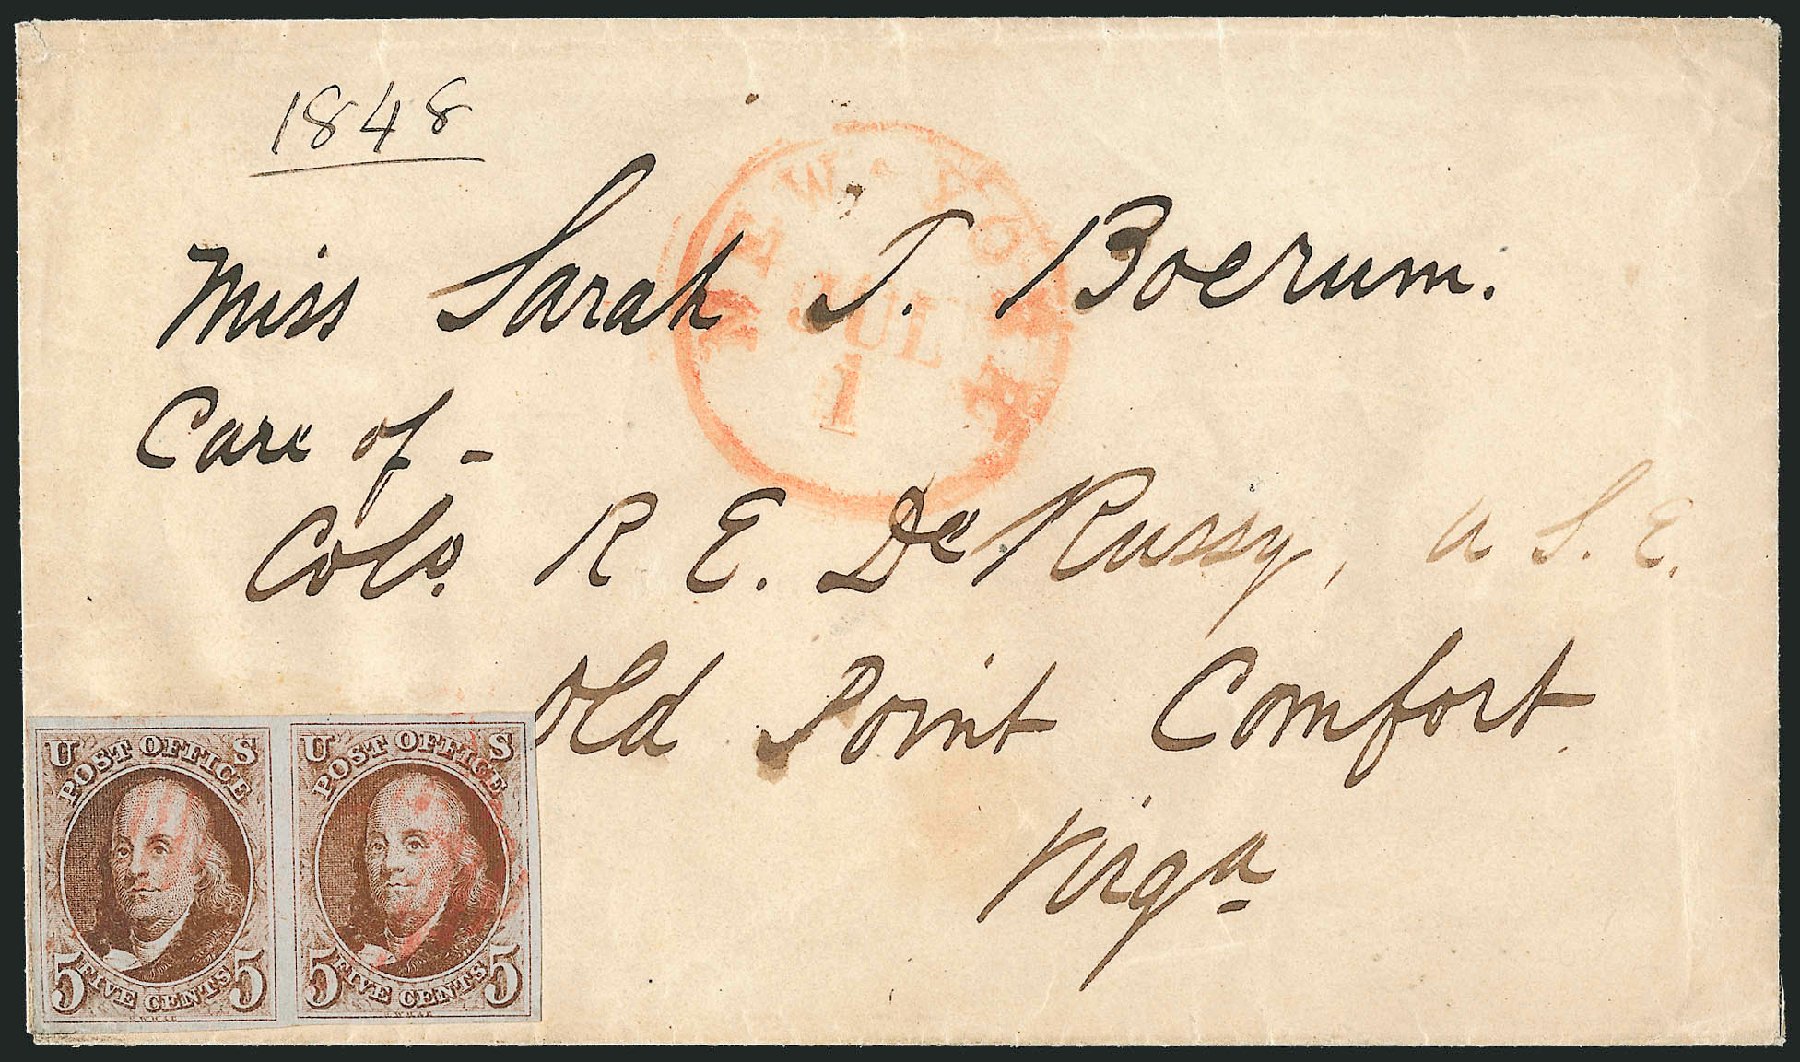 1848
NEW YORK
JUL
1
Miss Sarah T. Boerum.
Care of -
Colo. R E. De Russy, U S. E.
Old Point Comfort
Virga
U S
POST OFFICE
5 FIVE CENTS 5
U S
POST OFFICE
5 FIVE CENTS 5